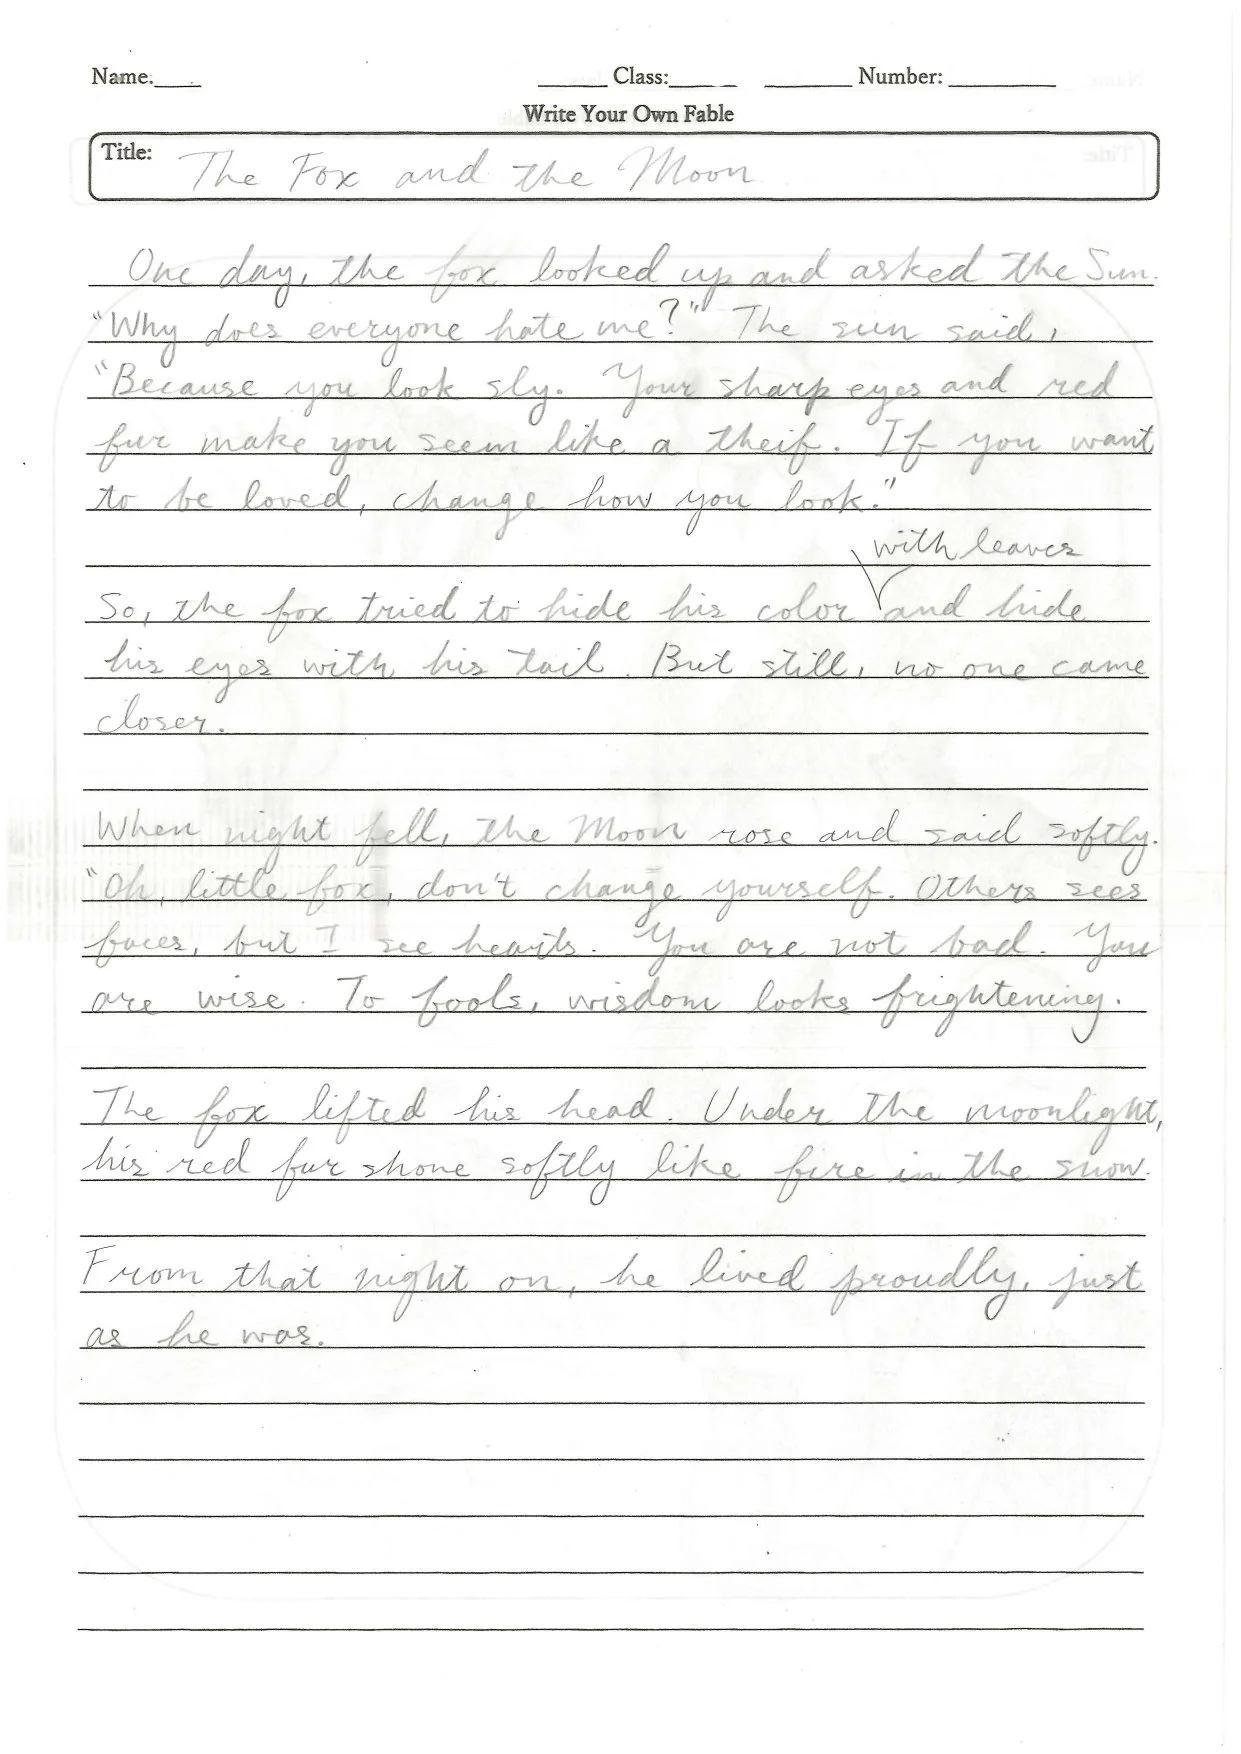 Name: Class: Number:
Write Your Own Fable
Title: The Fox and the Moon
One day, the fox looked up and asked the Sun.
"Why does everyone hate me?" The sun said,
"Because you look sly. Your sharp eyes and red
fur make you seem like a theif. If you want
to be loved, change how you look."
with leaves
So, the fox tried to hide his color and hide
his eyes with his tail. But still, no one came
closer.
When night fell, the Moon rose and said softly.
"Oh, little fox, don't change yourself. Others sees
faces, but I see hearts. You are not bad. You
are wise. To fools, wisdom looks frightening.
The fox lifted his head. Under the moonlight,
his red fur shone softly like fire in the snow.
From that night on, he lived proudly, just
as he was.